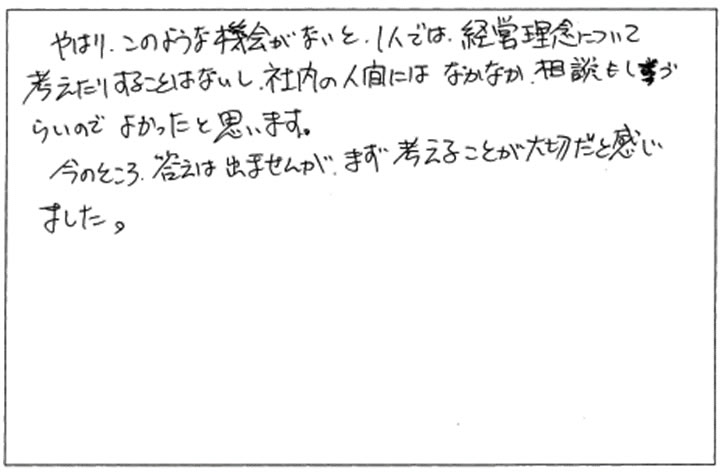 やはり、このような機会がないと、1人では、経営理念について
考えたりすることはないし、社内の人間にはなかなか、相談もしづ
らいのでよかったと思います。
今のところ、答えは出ませんが、まず考えることが大切だと感じ
ました。